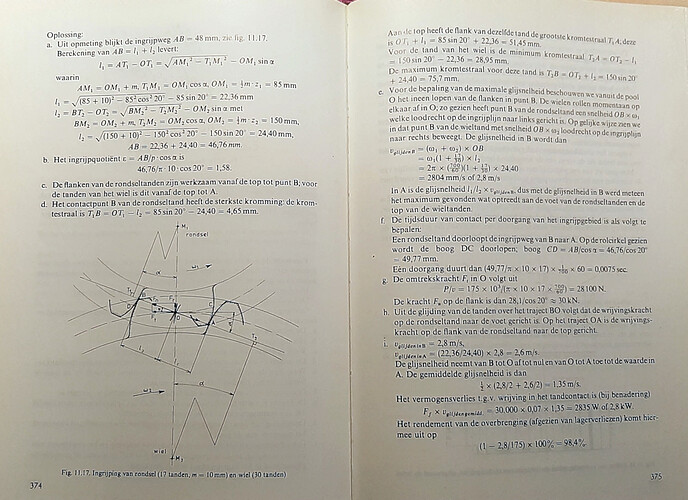 Oplossing:
a. Uit opmeting blijkt de ingrijpweg AB = 48 mm, zie fig. 11.17.
Berekening van AB = l₁ + l₂ levert:
l₁ = AT₁ − OT₁ = √AM₁² − T₁M₁² − OM₁ sin α
waarin
AM₁ = OM₁ + m, T₁M₁ = OM₁ cos α, OM₁ = ½m·z₁ = 85 mm
l₁ = √(85 + 10)² − 85² cos² 20° − 85 sin 20° = 22,36 mm
l₂ = BT₂ − OT₂ = √BM₂² − T₂M₂² − OM₂ sin α met
BM₂ = OM₂ + m, T₂M₂ = OM₂ cos α, OM₂ = ½m·z₂ = 150 mm,
l₂ = √(150 + 10)² − 150² cos² 20° − 150 sin 20° = 24,40 mm,
AB = 22,36 + 24,40 = 46,76 mm.
b. Het ingrijpquotiënt ε = AB/p·cos α is
46,76/π·10·cos 20° = 1,58.
c. De flanken van de rondseltanden zijn werkzaam vanaf de top tot punt B; voor
de tanden van het wiel is dit vanaf de top tot A.
d. Het contactpunt B van de rondseltand heeft de sterkste kromming: de krom-
testraal is T₁B = OT₁ − l₂ = 85 sin 20° − 24,40 = 4,65 mm.
M₁
rondsel
α
ω₁
T₁
B
O
A
C
T₂
l₂
ω₂
α
wiel
M₂
Fig. 11.17. Ingrijping van rondsel (17 tanden, m = 10 mm) en wiel (30 tanden)
374
Aan de top heeft de flank van dezelfde tand de grootste kromtestraal T₁A; deze
is OT₁ + l₁ = 85 sin 20° + 22,36 = 51,45 mm.
Voor de tand van het wiel is de minimum kromtestraal T₂A = OT₂ − l₁
= 150 sin 20° − 22,36 = 28,95 mm.
De maximum kromtestraal voor deze tand is T₂B = OT₂ + l₂ = 150 sin 20°
+ 24,40 = 75,7 mm.
e. Voor de bepaling van de maximale glijsnelheid beschouwen we vanuit de pool
O het ineen lopen van de flanken in punt B. De wielen rollen momentaan op
elkaar af in O; zo gezien heeft punt B van de rondseltand een snelheid OB × ω₁
welke loodrecht op de ingrijplijn naar links gericht is. Op gelijke wijze zien we
in dat punt B van de wieltand met snelheid OB × ω₂ loodrecht op de ingrijplijn
naar rechts beweegt. De glijsnelheid in B wordt dan
v glijden B = (ω₁ + ω₂) × OB
= ω₁(1 + 17/30) × l₂
= 2π × (700/60)(1 + 17/30) × 24,40
= 2804 mm/s of 2,8 m/s
In A is de glijsnelheid l₁/l₂ × v glijden B, dus met de glijsnelheid in B werd meteen
het maximum gevonden wat optreedt aan de voet van de rondseltanden en de
top van de wieltanden.
f. De tijdsduur van contact per doorgang van het ingrijpgebied is als volgt te
bepalen:
Een rondseltand doorloopt de ingrijpweg van B naar A. Op de rolcirkel gezien
wordt de boog DC doorlopen; boog CD = AB/cos α = 46,76/cos 20°
= 49,77 mm.
Een doorgang duurt dan (49,77/π × 10 × 17) × 1/700 × 60 = 0,0075 sec.
g. De omtrekskracht Fᵤ in O volgt uit
P/v = 175 × 10³/(π × 10 × 17 × 700/60) = 28100 N.
De kracht Fₙ op de flank is dan 28,1/cos 20° ≈ 30 kN.
h. Uit de glijding van de tanden over het traject BO volgt dat de wrijvingskracht
op de rondseltand naar de voet gericht is. Op het traject OA is de wrijvings-
kracht op de flank van de rondseltand naar de top gericht.
i. v glijden in B = 2,8 m/s,
v glijden in A = (22,36/24,40) × 2,8 = 2,6 m/s.
De glijsnelheid neemt van B tot O af tot nul en van O tot A toe tot de waarde in
A. De gemiddelde glijsnelheid is dan
½ × (2,8/2 + 2,6/2) = 1,35 m/s.
Het vermogensverlies t.g.v. wrijving in het tandcontact is (bij benadering)
F f × v glijden gemidd. = 30.000 × 0,07 × 1,35 = 2835 W of 2,8 kW.
Het rendement van de overbrenging (afgezien van lagerverliezen) komt hier-
mee uit op
(1 − 2,8/175) × 100% = 98,4%
375